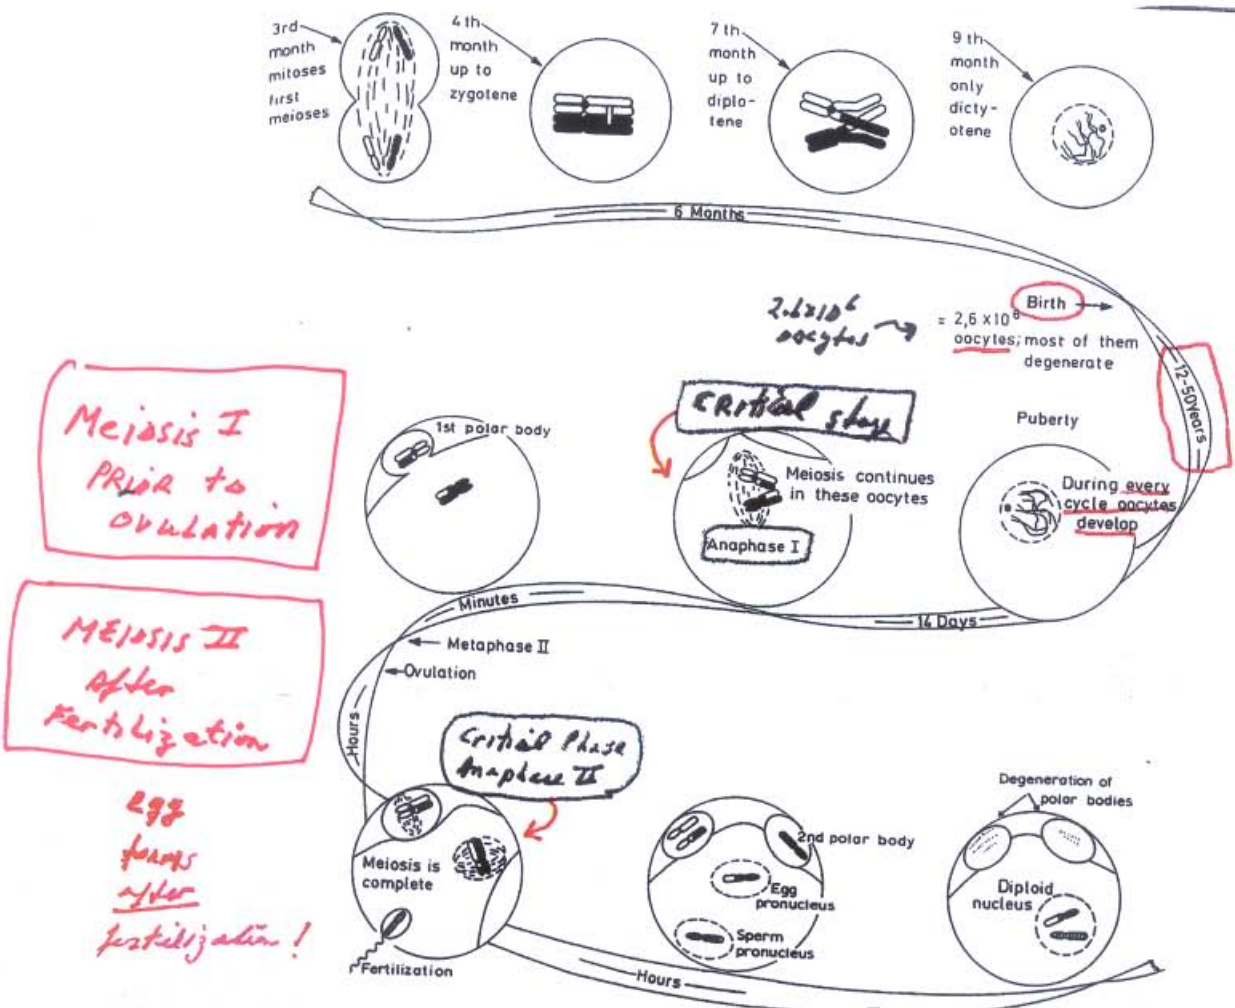 3rd
month
mitoses
first
meioses
4 th
month
up to
zygotene
7 th
month
up to
diplo-
tene
9 th
month
only
dicty-
otene
6 Months
Birth
2.6x10⁶
oocytes
= 2,6 x10⁶
oocytes; most of them
degenerate
12-50Years
Critical stage
Meiosis I
PRIOR to
ovulation
1st polar body
Meiosis continues
in these oocytes
Anaphase I
Puberty
During every
cycle oocytes
develop
Minutes
14 Days
MEIOSIS II
After
Fertilization
Metaphase II
Ovulation
Hours
Critical Phase
Anaphase II
egg
forms
after
fertilization!
Meiosis is
complete
Fertilization
2nd polar body
Egg
pronucleus
Sperm
pronucleus
Degeneration of
polar bodies
Diploid
nucleus
Hours